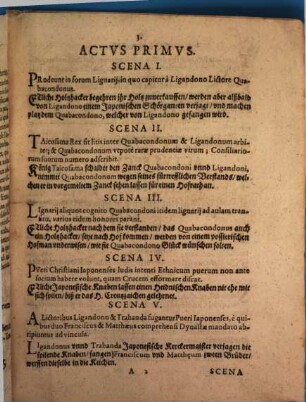 3.
ACTVS PRIMVS.
SCENA I.
PRodeunt in forum Lignarij: in quo capitur à Ligandono Lictore Qua-
bacondonus.
Etliche Holzhacker begehren jhr Holz zuuerkauffen / werden aber alßbald
von Ligandono einem Japonischen Schörganten verjagt / vnd machen
platz dem Quabacondono, welcher von Ligandonio gefangen wird.
SCENA II.
TAicosama Rex fit litis inter Quabacondonum & Ligandonum arbi-
ter; & Quabacondonum vtpote raræ prudentiæ virum, Consiliario-
rum suorum numero adscribit.
König Taicosama schaidet den Zanck Quabacondoni vnnd Ligandoni,
nimmt Quabacondonum wegen seines fürtrefflichen Verstands / wel-
chen er in vorgemeltem Zanck sehen lassen für einen Hofrath an.
SCENA III.
LIgnarij aliquot cognito Quabacondoni itidem lignarij ad aulam tran-
situ, verius eidem honores parant.
Etliche Holzhacker nach dem sie verstanden / daß Quabacondonus auch
ein Holzhacker / sey nach Hof kommen / werden von einem possierlichen
Hofman vnderwisen / wie sie Quabacondono Glück wünschen solten.
SCENA IV.
PVeri Christiani Iaponenses Iodia intenti Ethnicum puerum non ante
socium habere volunt, quàm Crucem efformare discat.
Etliche Japonesische Knaben lassen einen Heidnischen Knaben nit ehe mit
sich spilen / biß er das H. Creutzzaichen gelehrnet.
SCENA V.
A Lictoribus Ligandono & Trahanda fugantur Pueri Iaponenses, è qui-
bus duo Franciscus & Matthæus comprehensi Dynastæ mandato ab-
ripiuntur ad vincula.
LIgandonus vnnd Trahanda Japonesische Kerckermaister verjagen die
spilende Knaben / fangen Franciscum vnd Matthæum zween Brüder /
werffen dieselbe in die Kichen.
A 2 SCENA